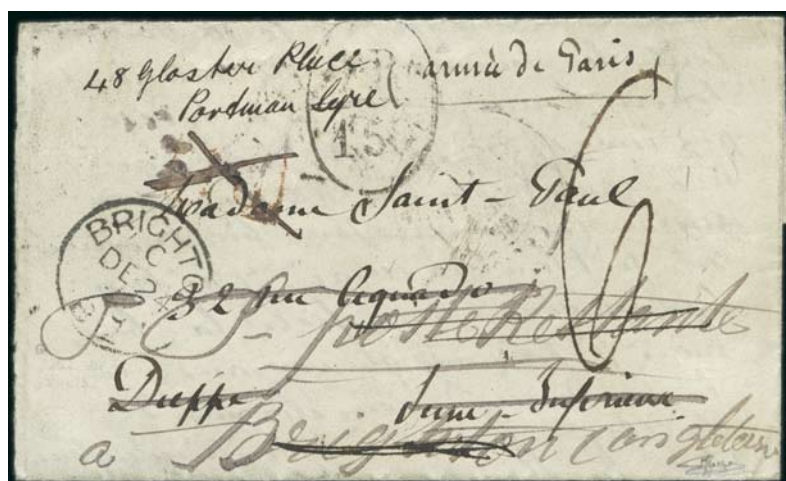 48 Gloster Place
Portman Sqre
armée de Paris
15
Madame Saint-Paul
BRIGHTO
C
DE 24
32 Rue
Poste Restante
Dieppe Seine-Inferieure
a Brighton (angleterre